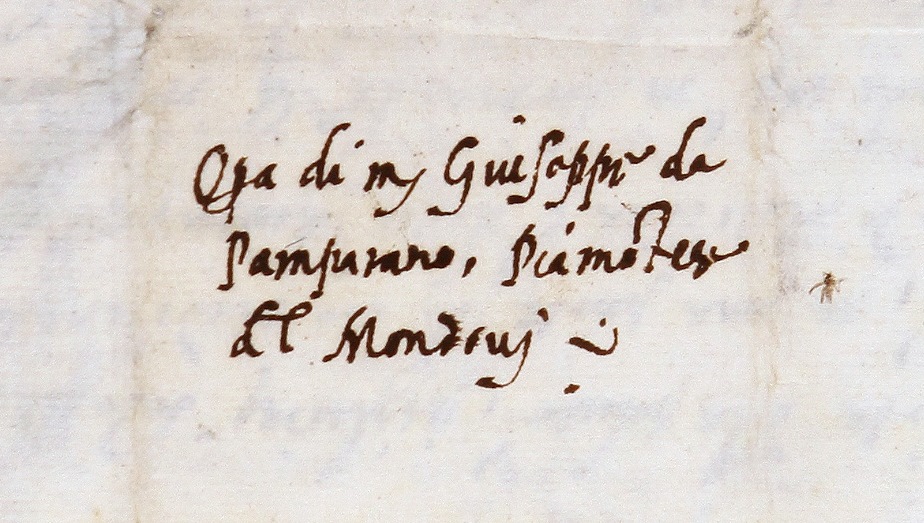 Opa di m Guiseppe da
Pampurano, Piamõtese
del Mondeuj